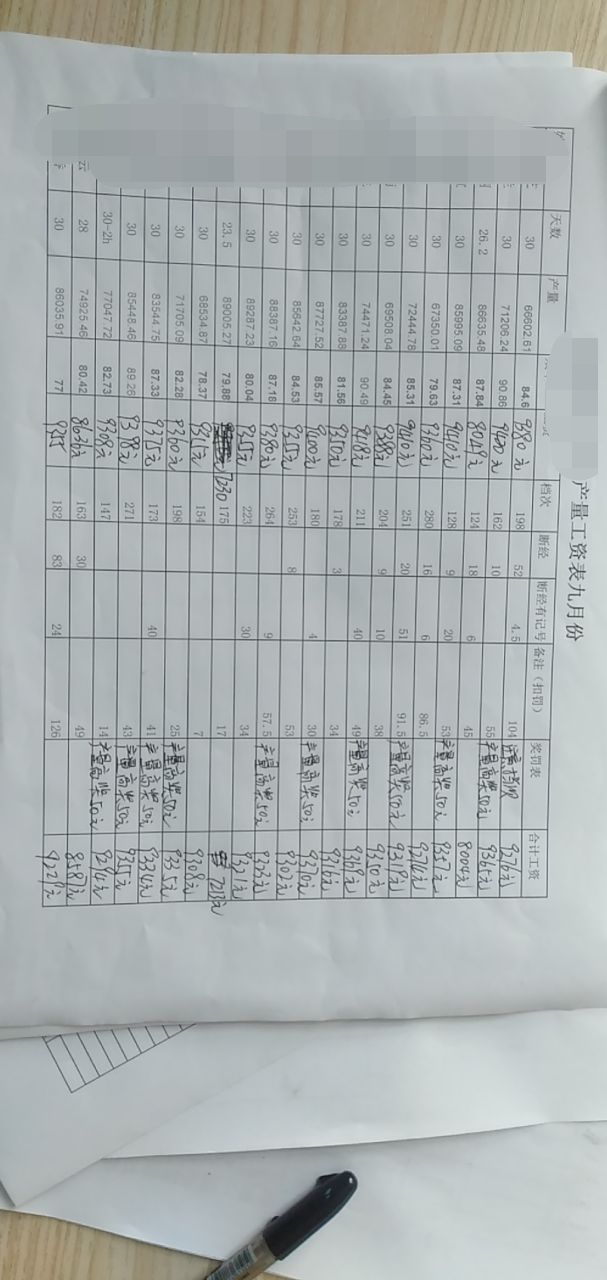 产量工资表九月份
天数 产量 档次 断经 断经有记号 备注（扣罚） 奖罚表 合计工资
30 66602.61 84.6 9380元 198 52 4.5 104 9276元
30 71206.24 90.86 9420元 162 10 55 产量高奖50元 9365元
26.2 86635.48 87.84 8049元 124 18 6 45 8004元
30 85995.09 87.31 9410元 128 9 20 53 产量高奖50元 9357元
30 67350.01 79.63 9360元 280 16 6 86.5 9274元
30 72444.78 85.31 9410元 251 20 51 91.5 产量高奖50元 9319元
30 69508.04 84.45 9388元 204 9 10 38 9350元
30 74471.24 90.49 9418元 211 40 49 产量高奖50元 9369元
30 83387.88 81.56 9350元 178 3 34 9316元
30 87727.52 85.57 9400元 180 4 30 产量高奖50元 9370元
30 85642.64 84.53 9355元 253 8 53 9302元
30 88387.16 87.18 9380元 264 9 57.5 产量高奖50元 9323元
30 89287.23 80.04 9355元 223 30 34 9321元
23.5 89005.27 79.88 7230 175 17 7213元
30 68534.87 78.37 9315元 154 7 9308元
30 71705.09 82.28 9360元 198 25 产量高奖50元 9335元
30 83544.75 87.33 9375元 173 40 41 产量高奖50元 9334元
30 85448.46 89.26 9398元 271 43 产量高奖50元 9355元
30-2h 77047.72 82.73 9308元 147 14 产量高奖50元 9294元
云 28 74925.46 80.42 8636元 163 30 49 8587元
30 86035.91 77 9355 182 83 24 126 9229元